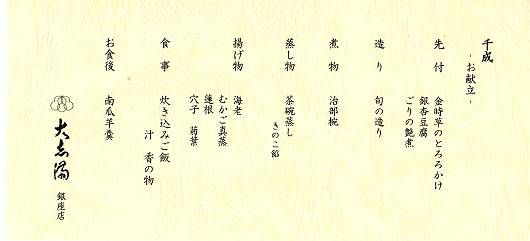 千成
-お献立-
先付 金時草のとろろかけ
銀杏豆腐
ごりの艶煮
造り 旬の造り
煮物 治部椀
蒸し物 茶碗蒸し
きのこ餡
揚げ物 海老
むかご真蒸
蓮根
穴子 蒟蒻
食事 炊き込みご飯
汁 香の物
お食後 南瓜羊羹
大志満 銀座店